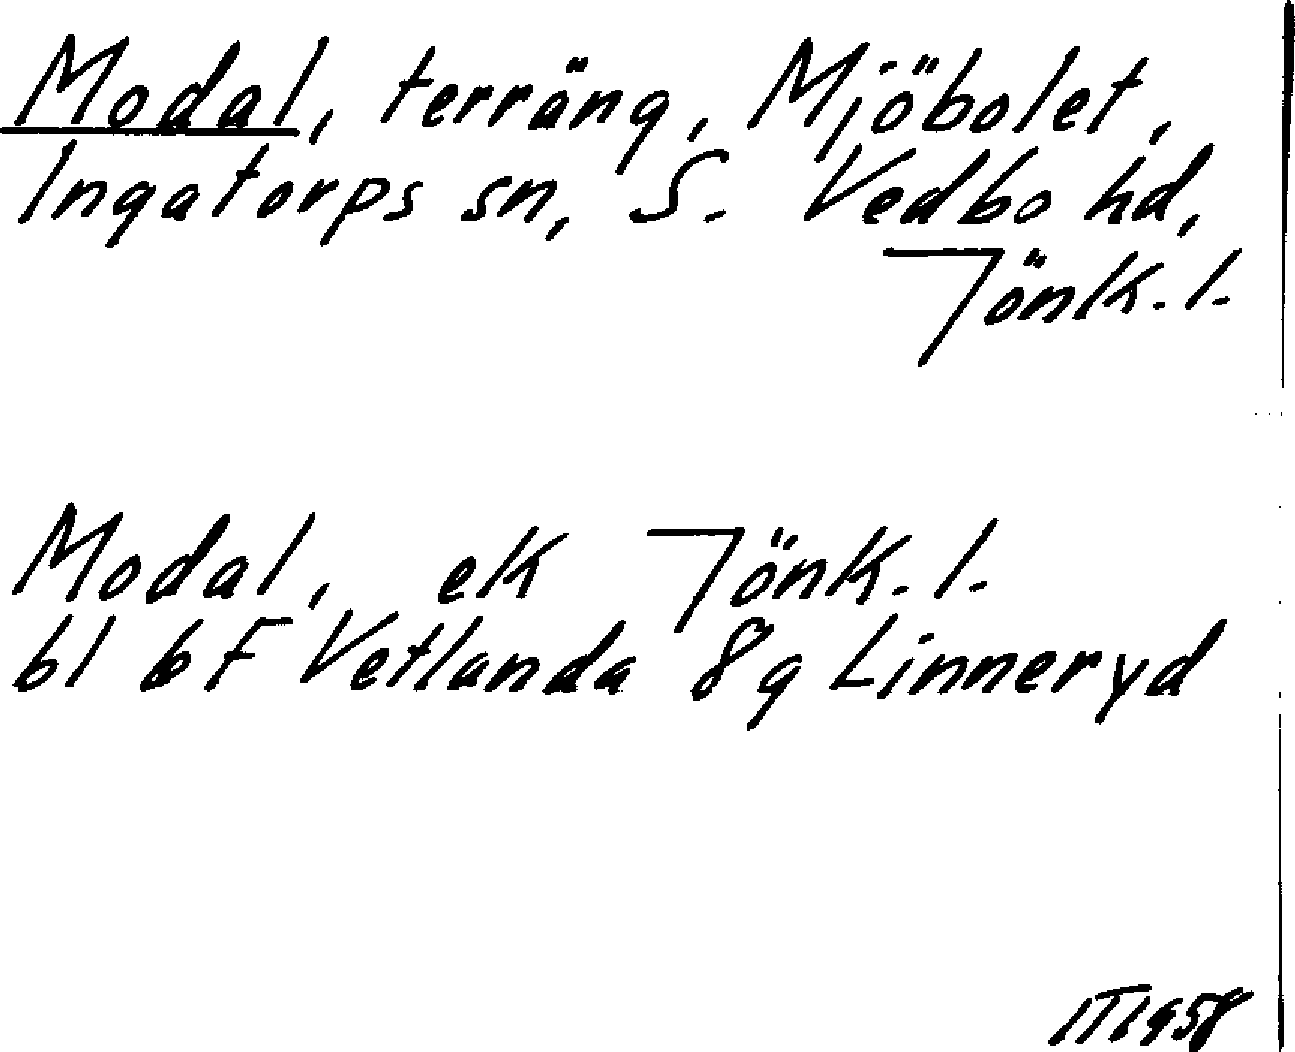 Modal, terräng, Mjöbolet,
Ingatorps sn, S. Vedbo hd,
Jönk. l.
Modal, ek Jönk. l.
bl 6F Vetlanda 8g Linneryd
IT1958